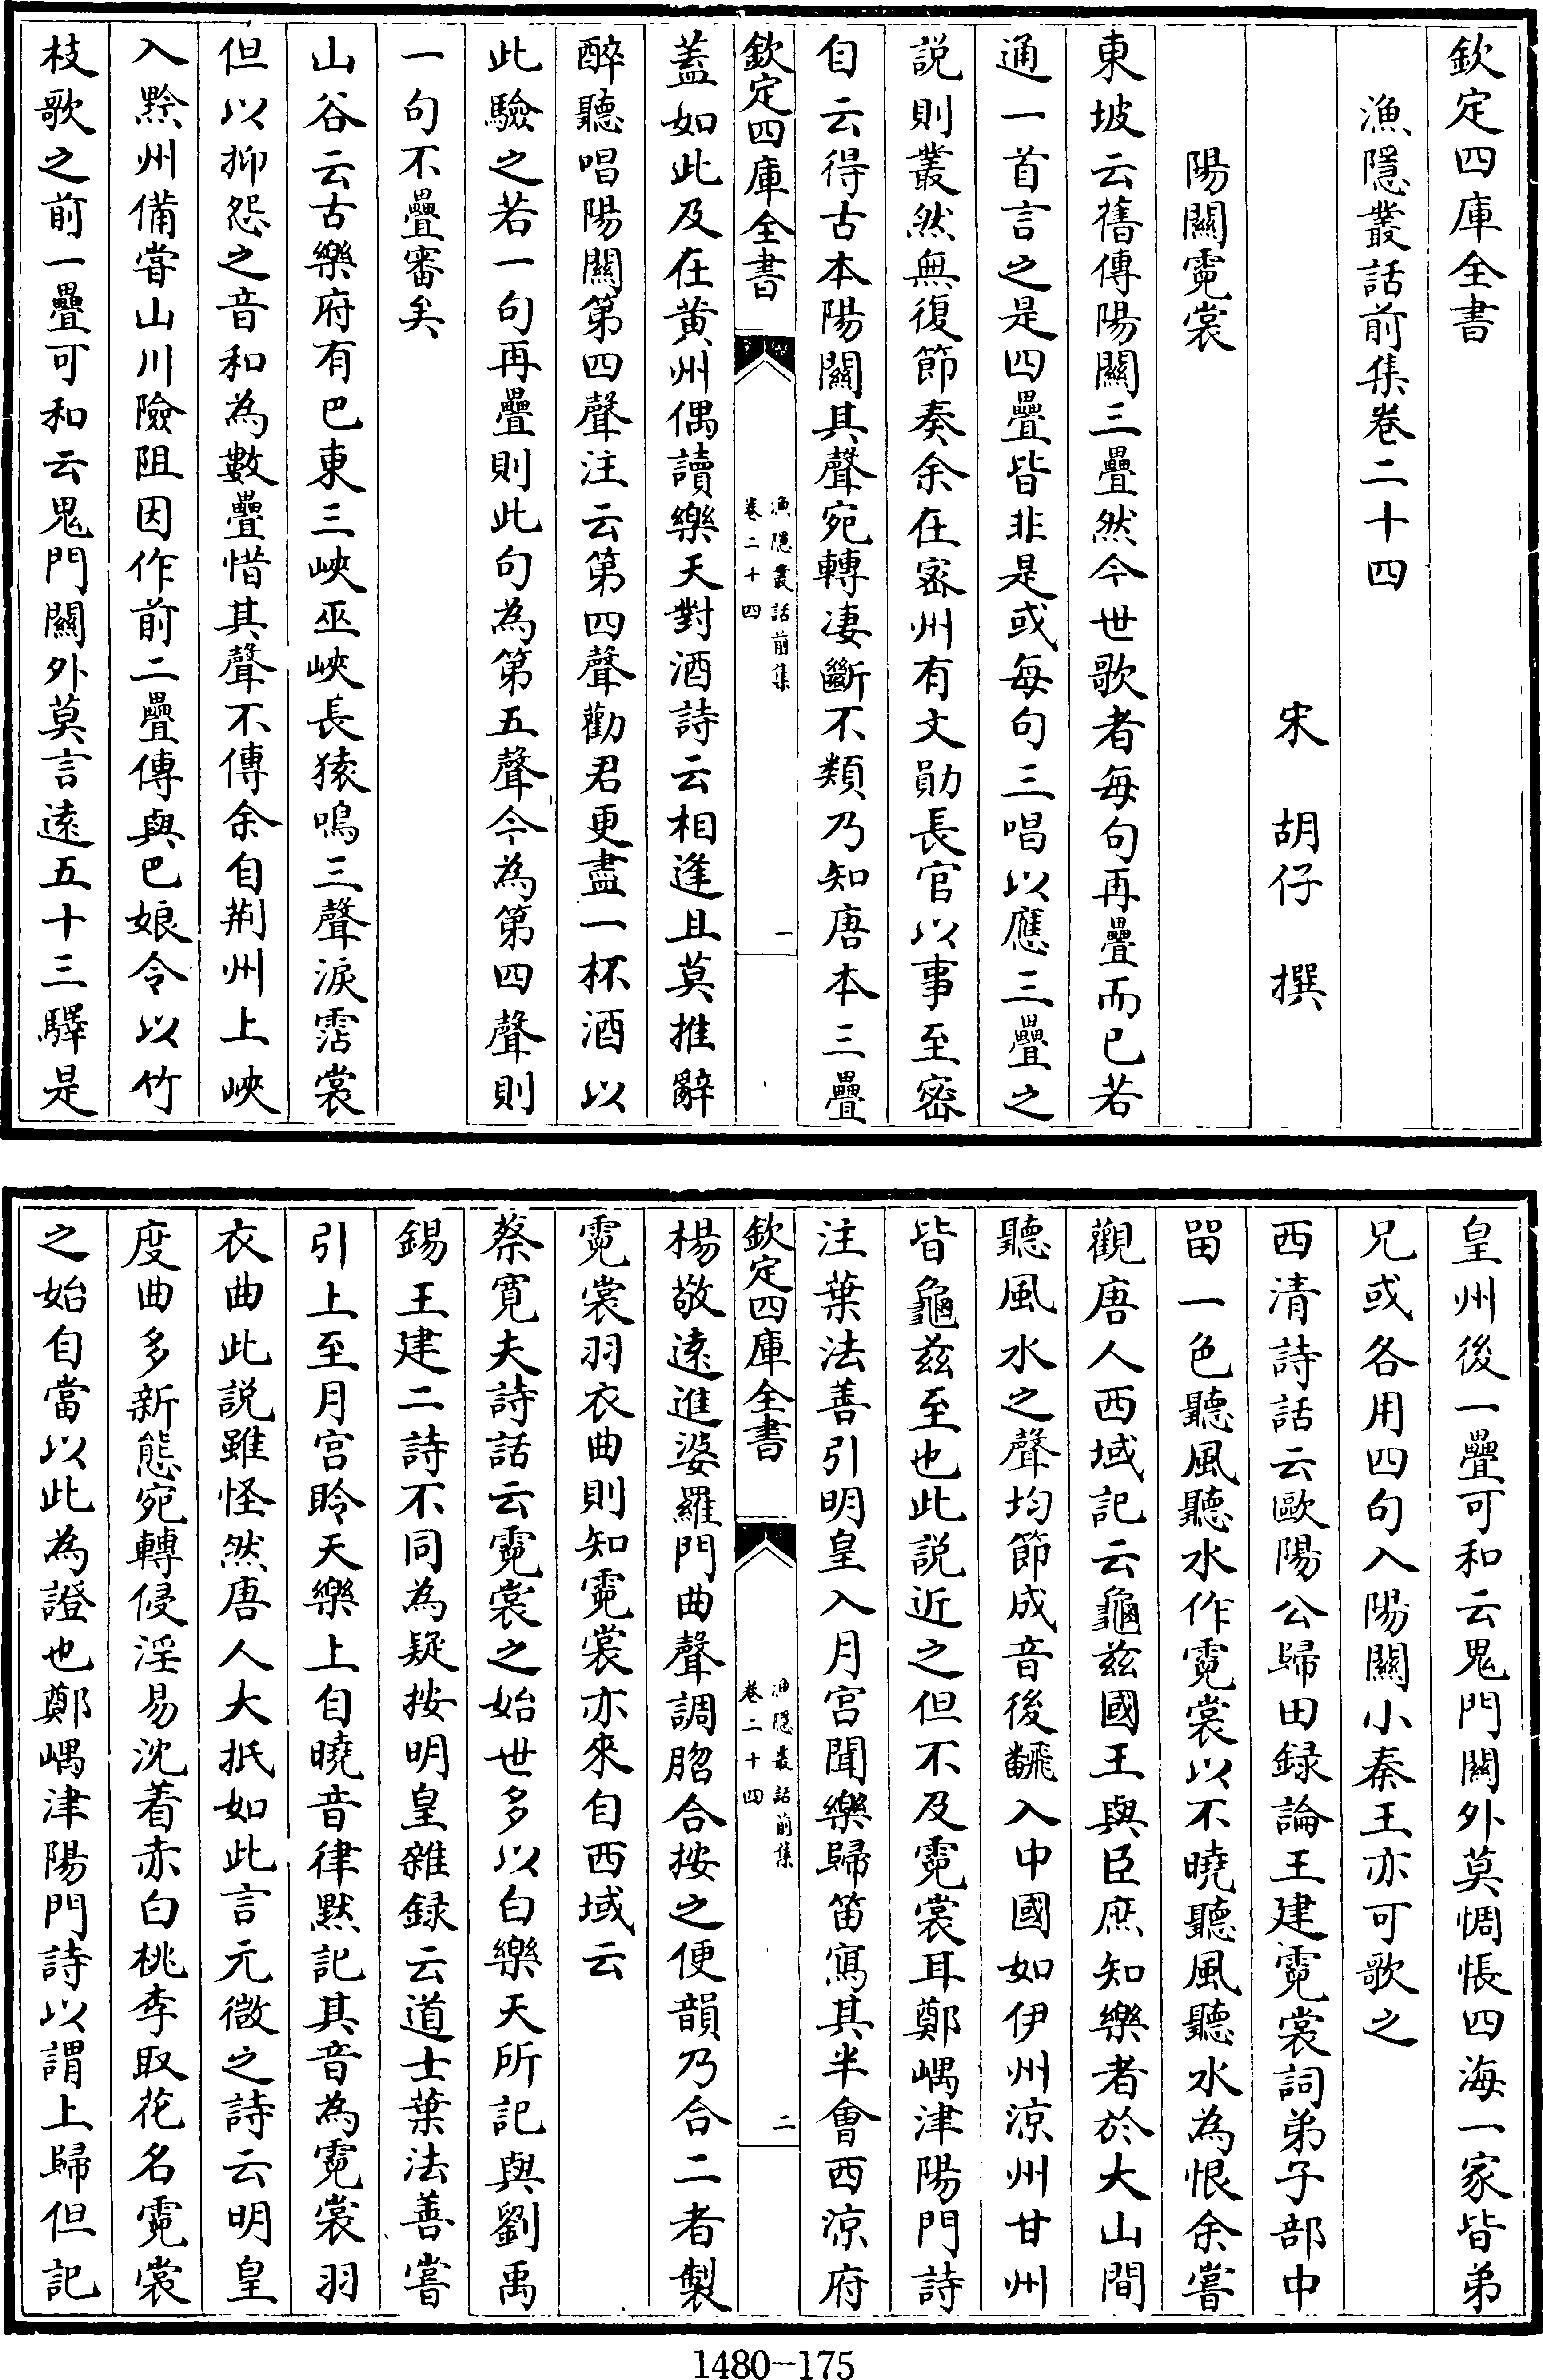 欽定四庫全書
漁隱叢話前集卷二十四
宋 胡仔 撰
陽關霓裳
東坡云舊傳陽關三疊然今世歌者每句再疊而已若
通一首言之是四疊皆非是或每句三唱以應三疊之
説則叢然無復節奏余在宻州有文勛長官以事至密
自云得古本陽關其聲宛轉凄斷不類乃知唐本三疊
欽定四庫全書
漁隱叢話前集
卷二十四
一
蓋如此及在黄州偶讀樂天對酒詩云相逢且莫推辭
醉聽唱陽關第四聲注云第四聲勸君更盡一杯酒以
此驗之若一句再疊則此句為第五聲今為第四聲則
一句不疊審矣
山谷云古樂府有巴東三峽巫峽長猿鳴三聲淚霑裳
但以抑怨之音和為數疊惜其聲不傳余自荆州上峽
入黔州備嘗山川險阻因作前二疊傳與巴娘令以竹
枝歌之前一疊可和云鬼門關外莫言逺五十三驛是
皇州後一疊可和云鬼門關外莫惆悵四海一家皆弟
兄或各用四句入陽關小秦王亦可歌之
西清詩話云歐陽公歸田録論王建霓裳詞弟子部中
留一色聽風聽水作霓裳以不曉聽風聽水為恨余嘗
觀唐人西域記云龜兹國王與臣庶知樂者於大山間
聽風水之聲均節成音後飜入中國如伊州凉州甘州
皆龜兹至也此説近之但不及霓裳耳鄭嵎津陽門詩
注葉法善引明皇入月宫聞樂歸笛寫其半會西凉府
欽定四庫全書
漁隱叢話前集
卷二十四
二
楊敬逺進婆羅門曲聲調脗合按之便韻乃合二者製
霓裳羽衣曲則知霓裳亦來自西域云
蔡寛夫詩話云霓裳之始世多以白樂天所記與劉禹
錫王建二詩不同為疑按明皇雜録云道士葉法善嘗
引上至月宫聆天樂上自曉音律黙記其音為霓裳羽
衣曲此説雖怪然唐人大抵如此言元微之詩云明皇
度曲多新態宛轉侵淫易沈着赤白桃李取花名霓裳
之始自當以此為證也鄭嵎津陽門詩以謂上歸但記
1480-175